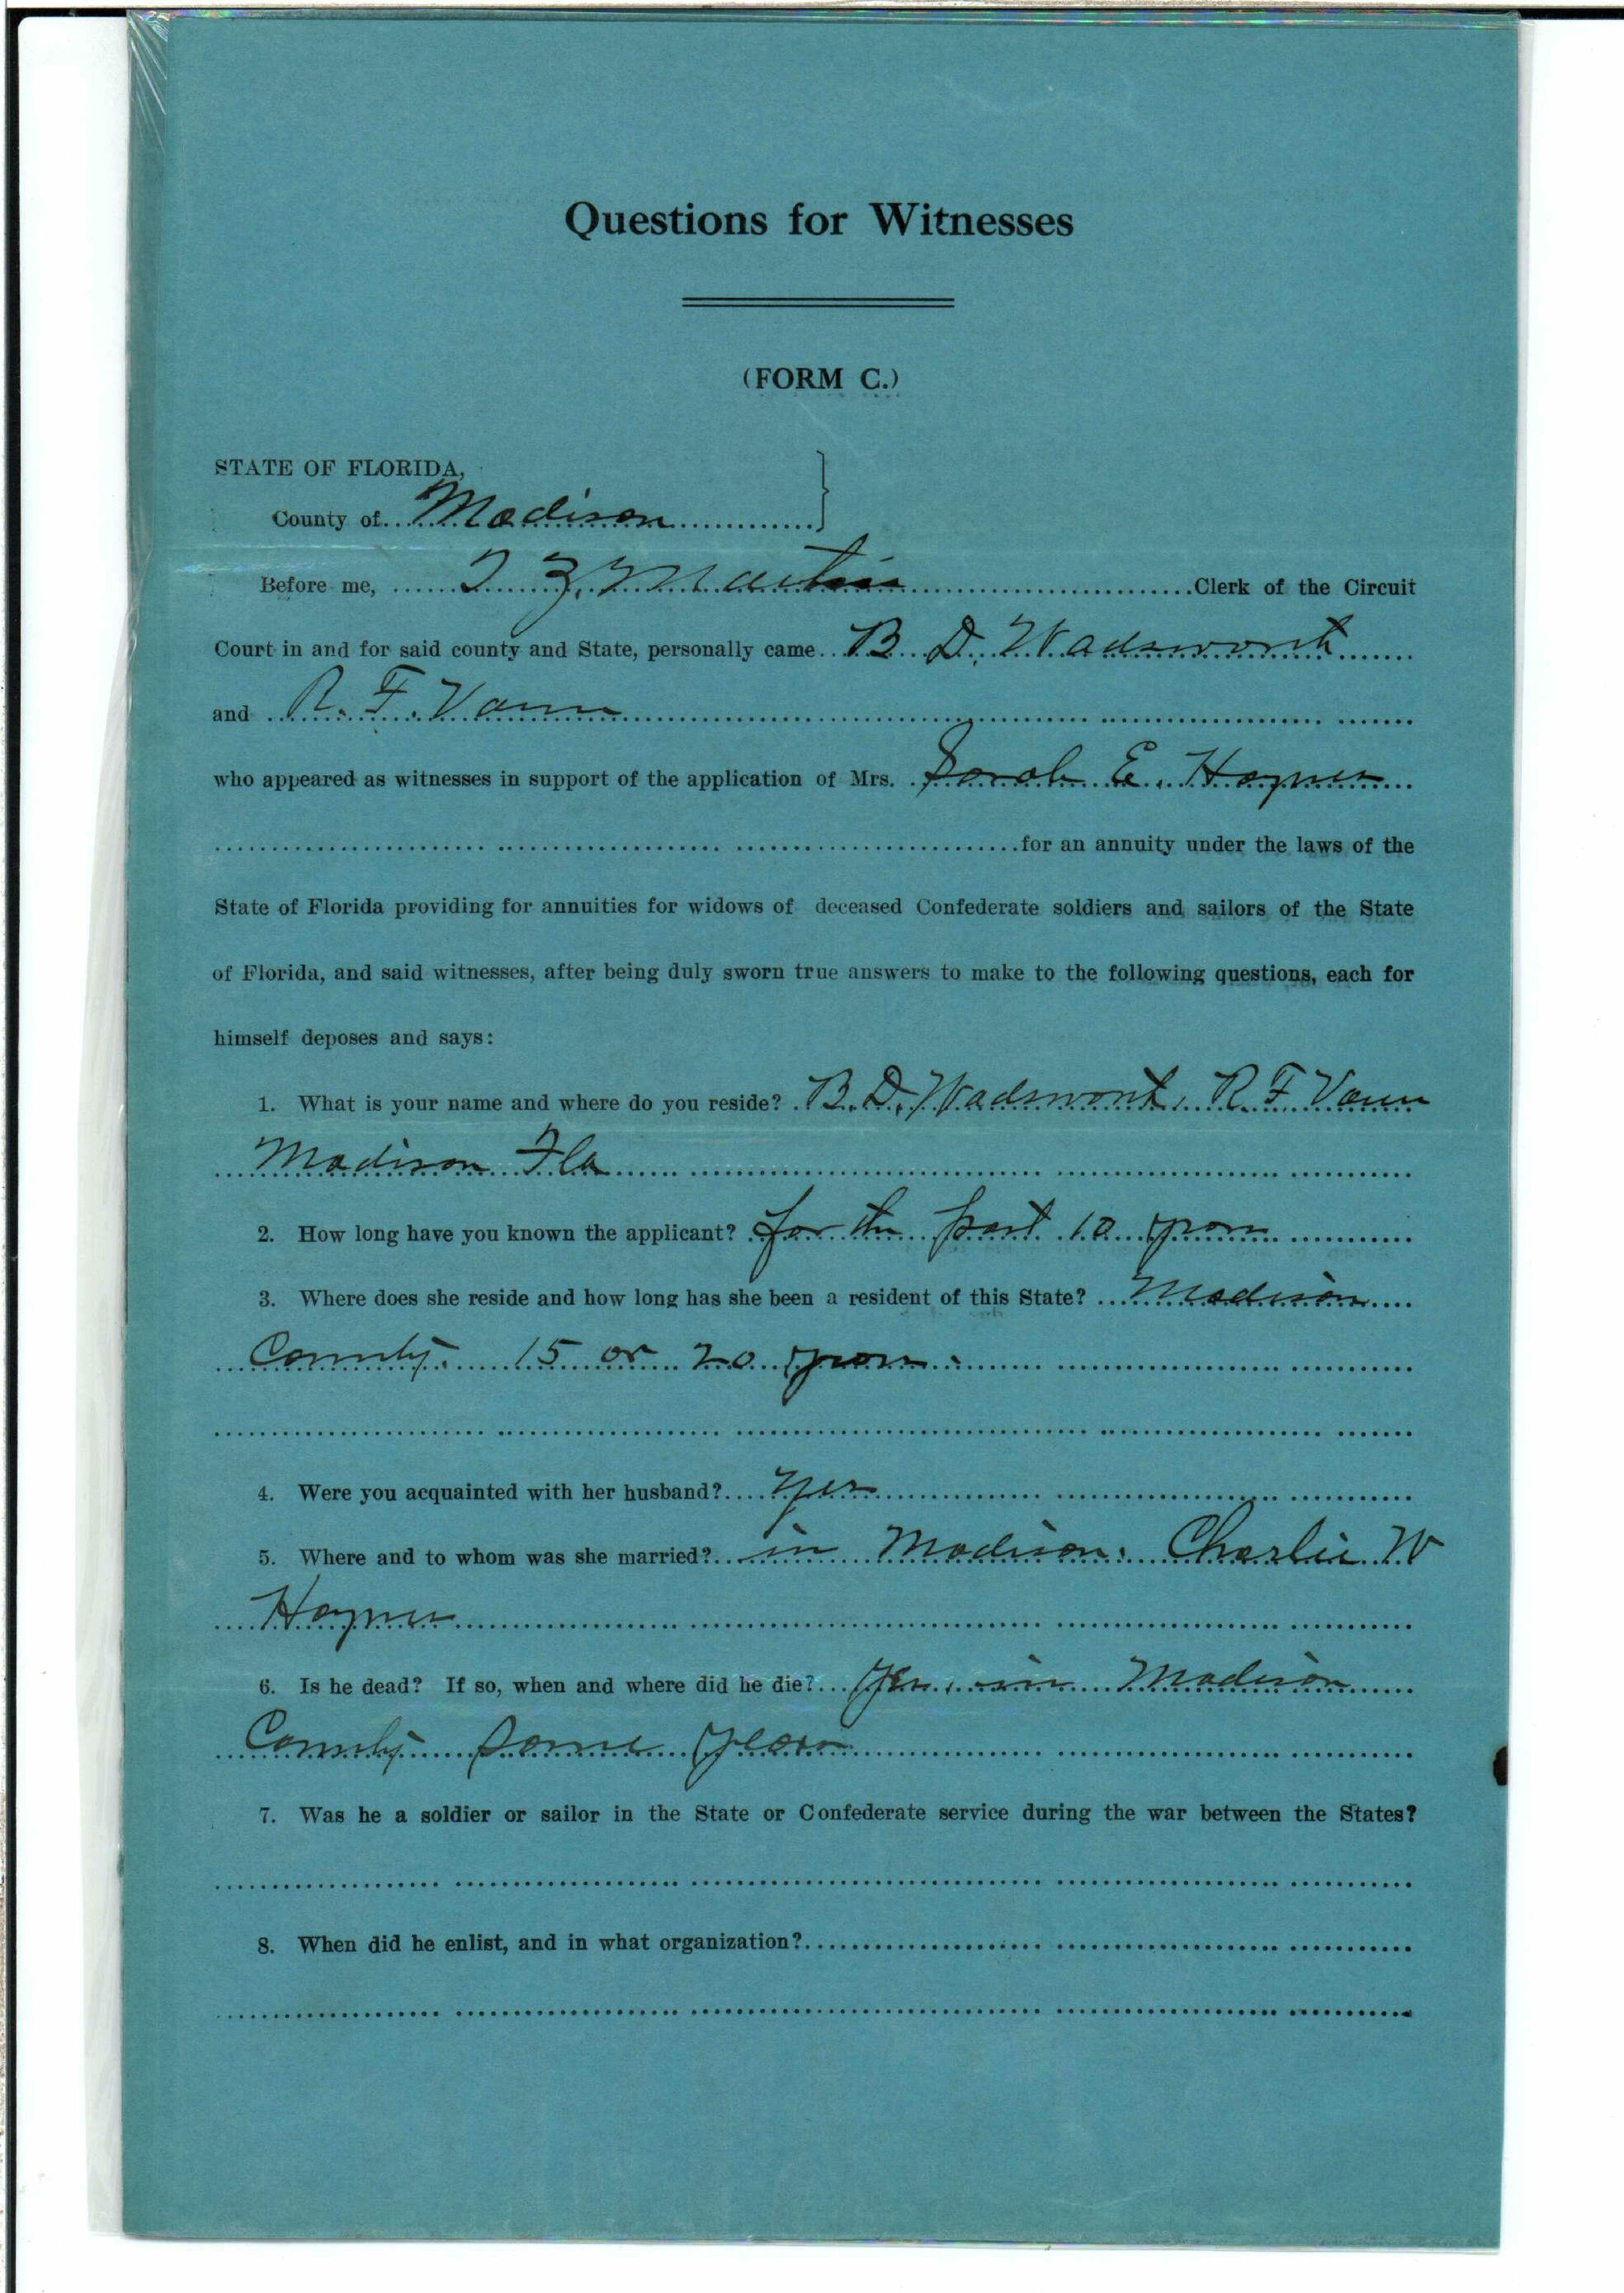 Questions for Witnesses
(FORM C.)
STATE OF FLORIDA,
County of Madison
Before me, T Z. Martin Clerk of the Circuit
Court in and for said county and State, personally came B. D. Wadsworth
and R. F. Vann
who appeared as witnesses in support of the application of Mrs. Sarah E. Haynes
for an annuity under the laws of the
State of Florida providing for annuities for widows of deceased Confederate soldiers and sailors of the State
of Florida, and said witnesses, after being duly sworn true answers to make to the following questions, each for
himself deposes and says:
1. What is your name and where do you reside? B. D. Wadsworth, R. F. Vann
Madison Fla
2. How long have you known the applicant? for the past 10 years
3. Where does she reside and how long has she been a resident of this State? Madison
County. 15 or 20 years.
4. Were you acquainted with her husband? Yes
5. Where and to whom was she married? in Madison. Charlie W
Haynes
6. Is he dead? If so, when and where did he die? Yes, in Madison
County some years
7. Was he a soldier or sailor in the State or Confederate service during the war between the States?
8. When did he enlist, and in what organization?